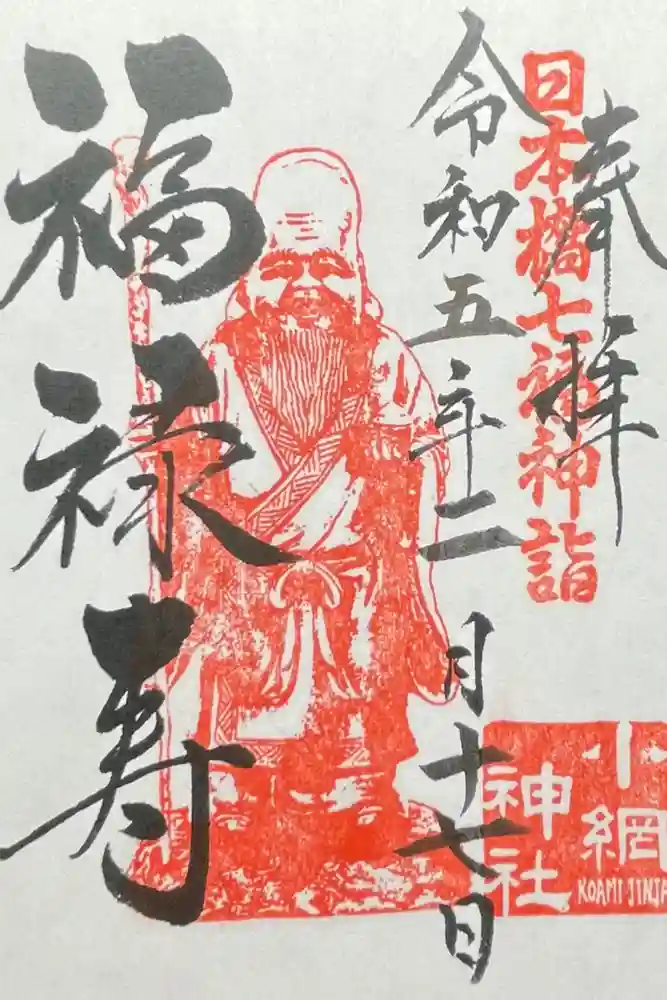 奉拝
日本橋七福神詣
令和五年二月十七日
福禄寿
小網
神社
KOAMI JINJA